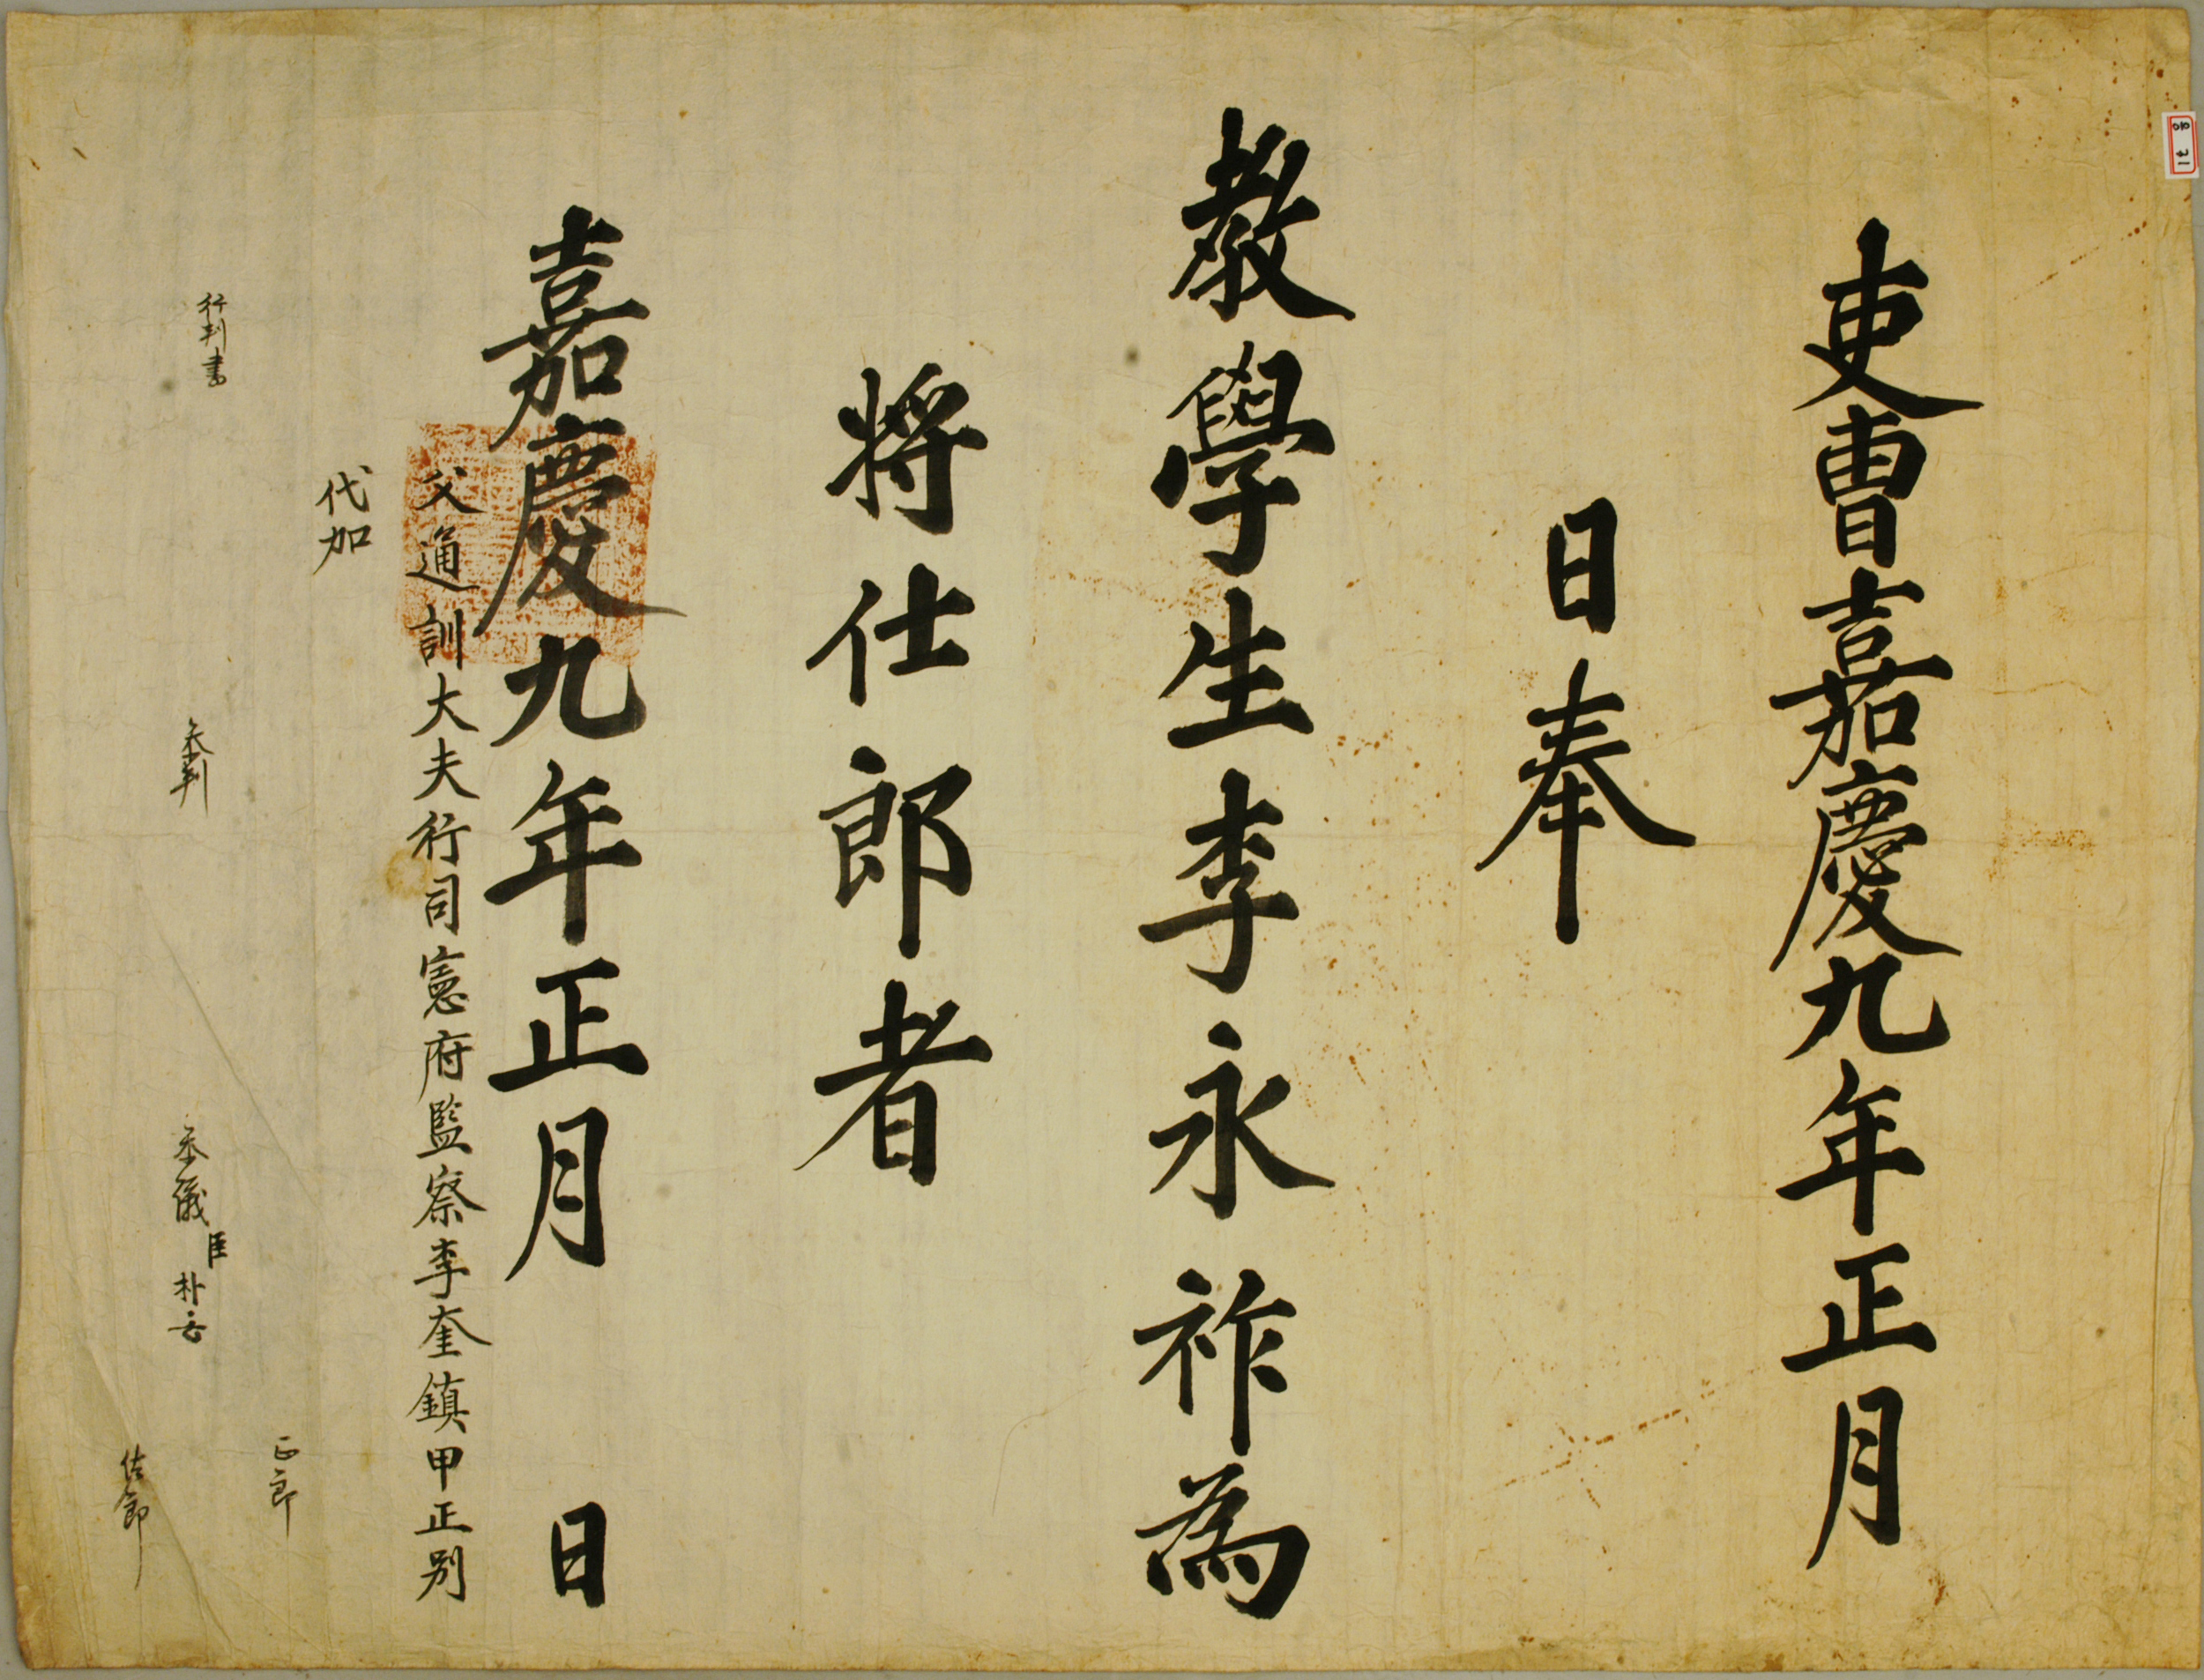 吏曹嘉慶九年正月
日奉
敎學生李永祚爲
將仕郎者
嘉慶九年正月 日
父通訓大夫行司憲府監察李奎鎮甲正別
代加
行判書
參判
參議臣朴
正郎
佐郎